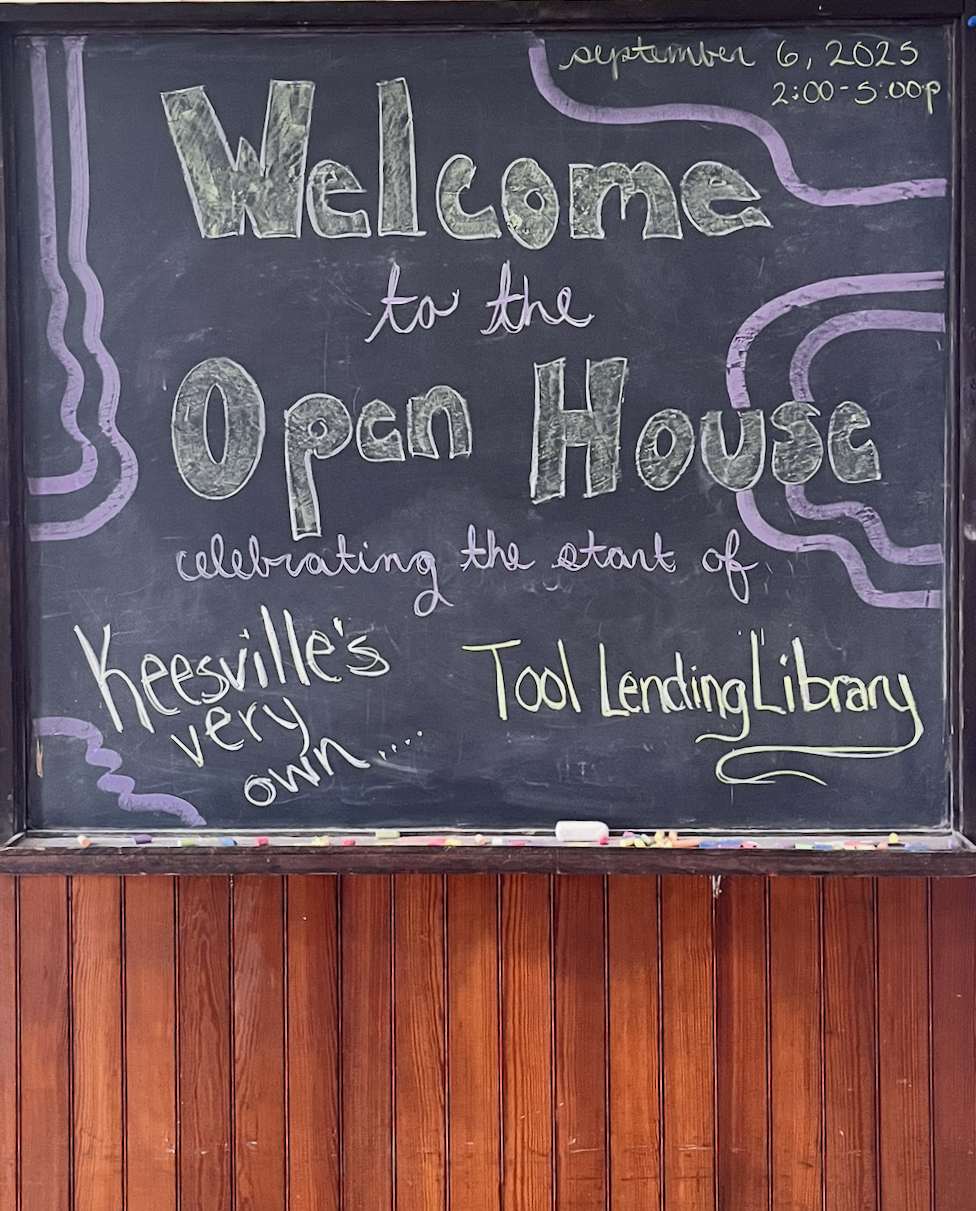 september 6, 2025
2:00-5:00p
Welcome
to the
Open House
celebrating the start of
Keesville's
very
own.....
Tool Lending Library